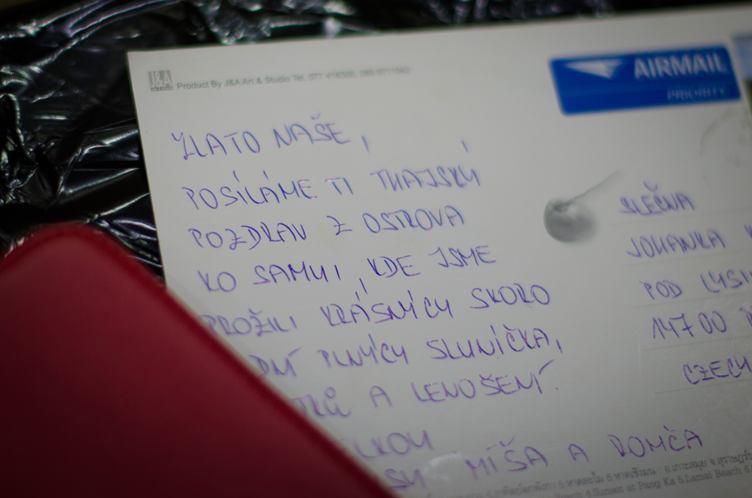 J&A
Product By J&A Art & Studio Tel. 077
AIRMAIL
PRIORITY
ZLATO NAŠE,
POSÍLÁME TI THAJSKÝ
POZDRAV Z OSTROVA
KO SAMUI, KDE JSME
PROŽILI KRÁSNÝCH SKORO
DNÍ PLNÝCH SLUNÍČKA,
A LENOŠENÍ.
MÍŠA A DOMČA
SLEČNA
JOHANKA
POD LYSI
147 00
CZECH